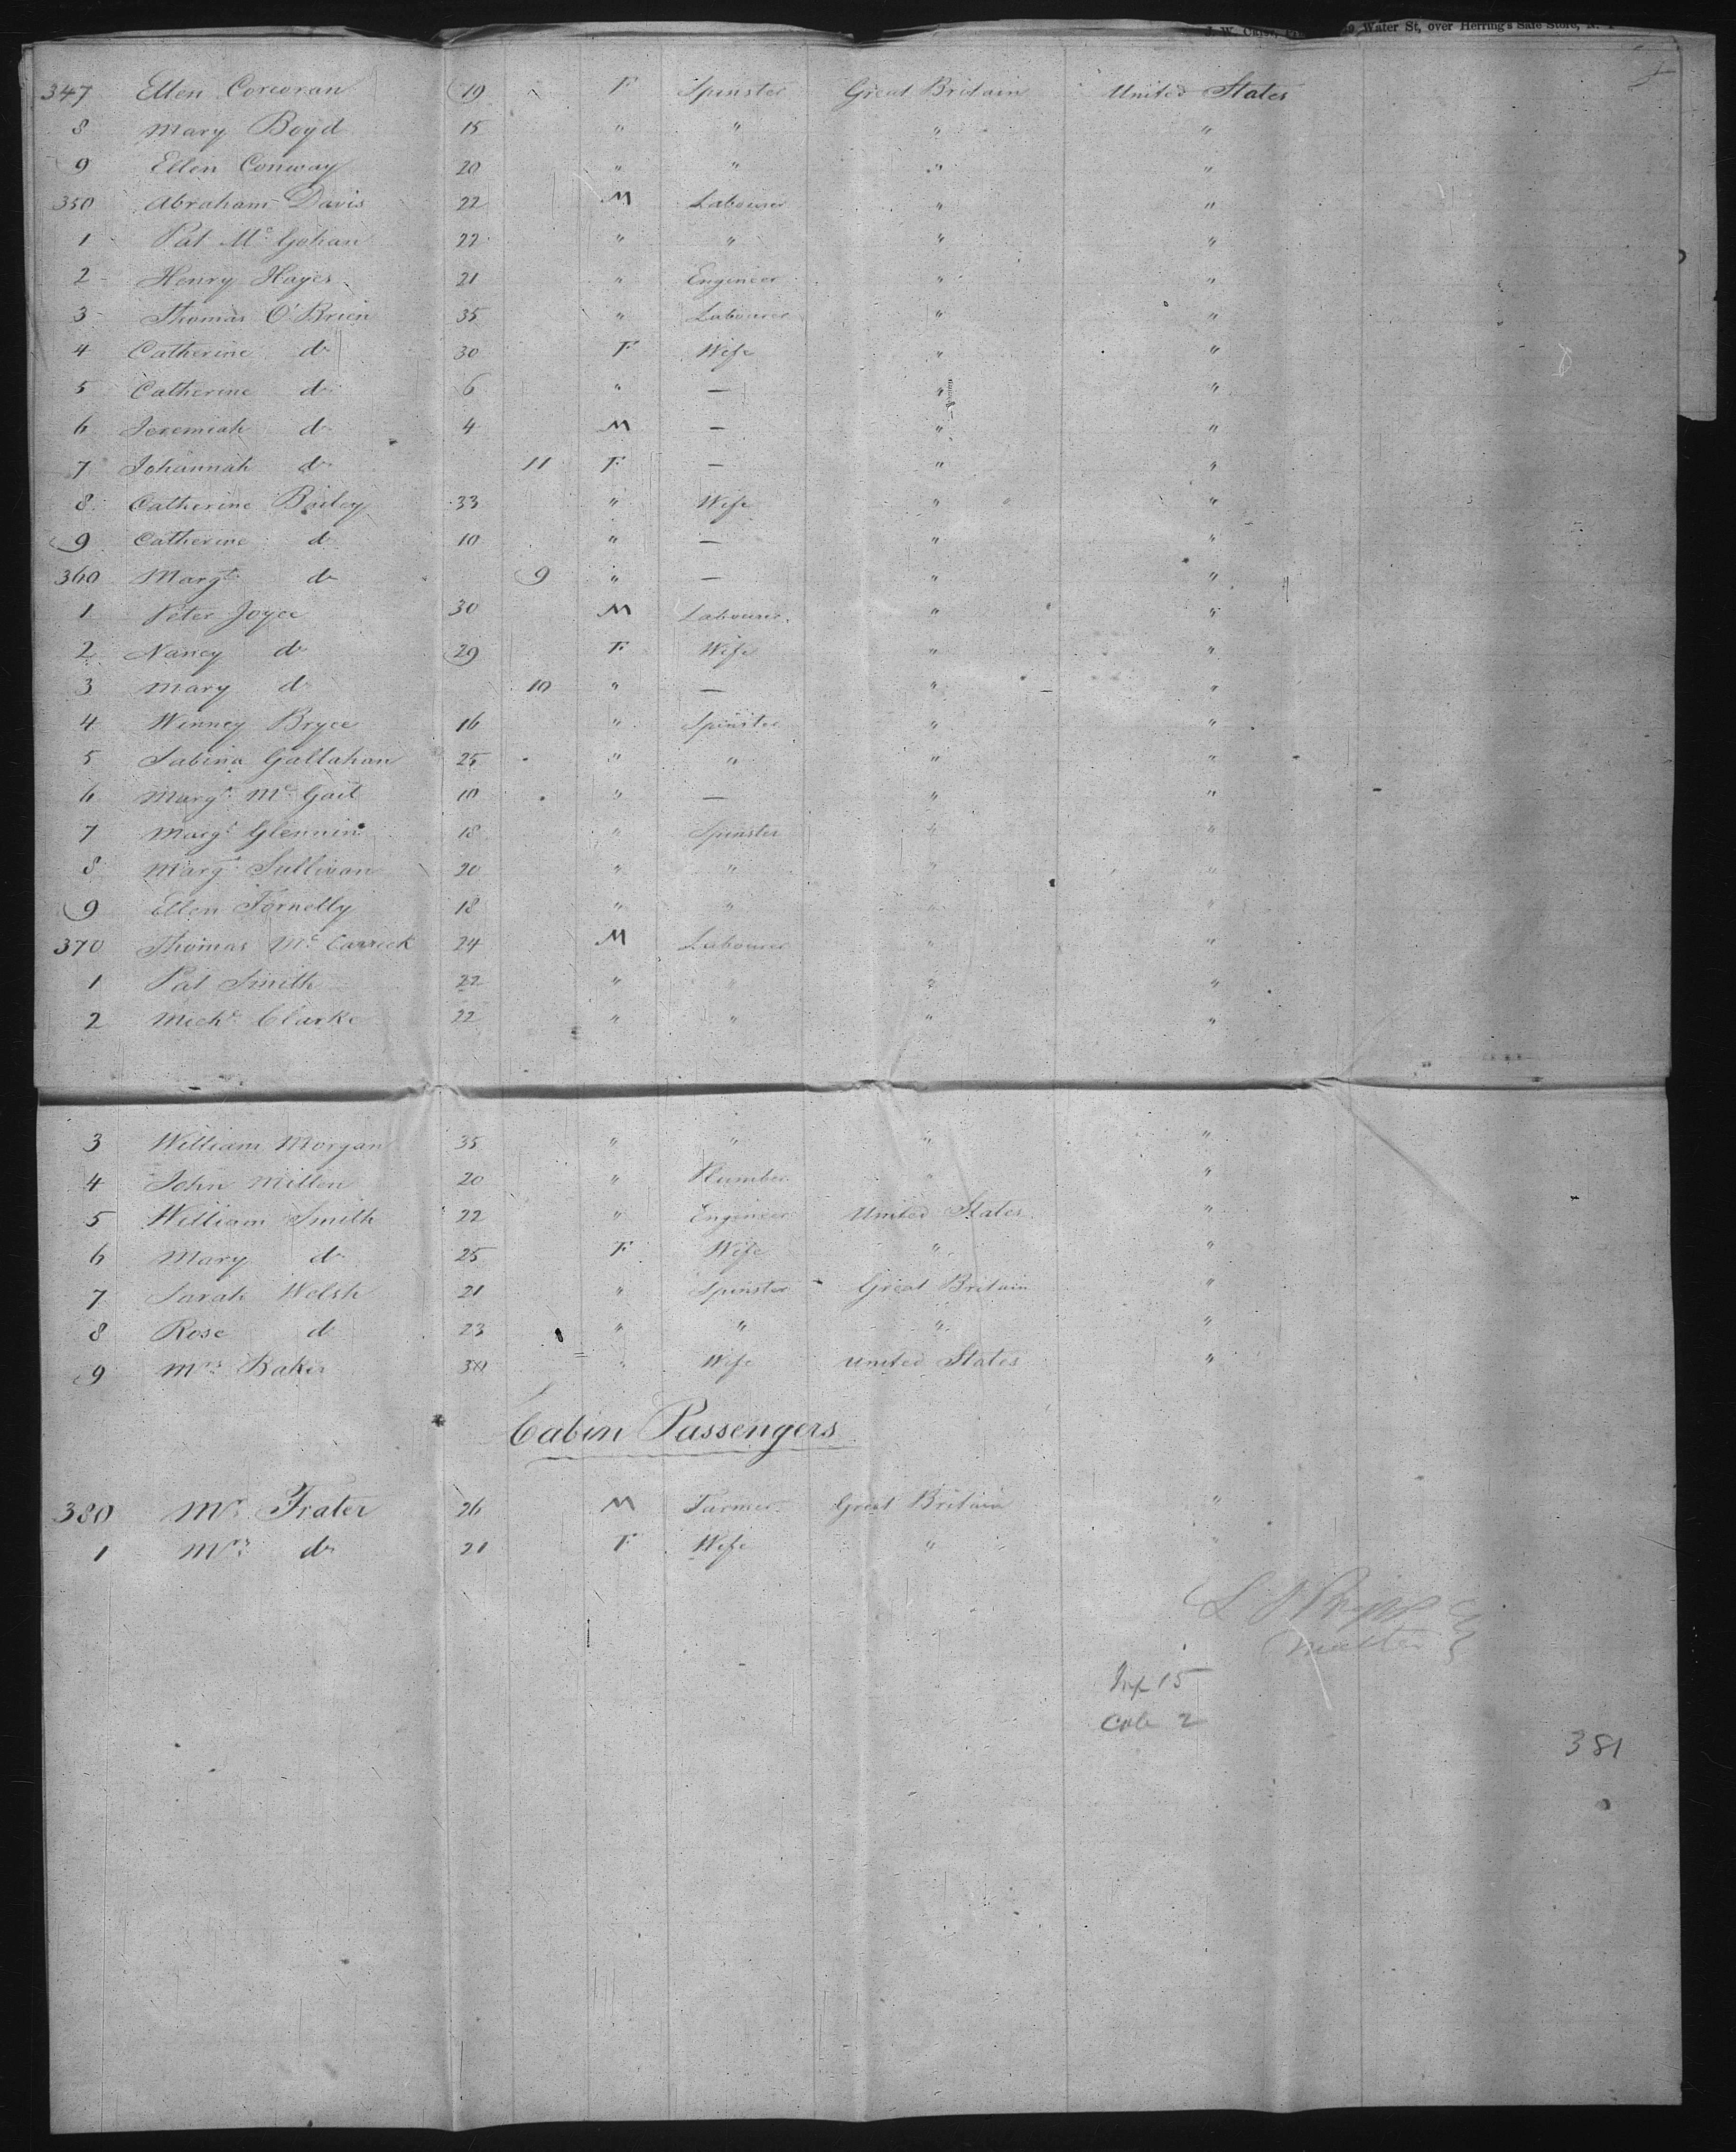 Water St, over Herring's Safe Store, N. Y
347 Ellen Corcoran 19 F Spinster Great Britain United States
8 Mary Boyd 15 " " " "
9 Ellen Conway 20 " " " "
350 Abraham Davis 22 M Labourer " "
1 Pat Mc Gohan 22 " " " "
2 Henry Hayes 21 " Engineer " "
3 Thomas O'Brien 35 " Labourer " "
4 Catherine do 30 F Wife " "
5 Catherine do 6 " — " "
6 Jeremiah do 4 M — " "
7 Johannah do 11 F — " "
8 Catherine Bailey 33 " Wife " "
9 Catherine do 10 " — " "
360 Margt do 9 " — " "
1 Peter Joyce 30 M Labourer " "
2 Nancy do 29 F Wife " "
3 Mary do 10 " — " "
4 Winney Bryce 16 " Spinster " "
5 Sabina Gallahan 25 " " " "
6 Margt Mc Gait 10 " — " "
7 Margt Glennin 18 " Spinster " "
8 Margt Sullivan 20 " " " "
9 Ellen Fernelly 18 " " " "
370 Thomas Mc Carrick 24 M Labourer " "
1 Pat Smith 22 " " " "
2 Michl Clarke 22 " " " "
3 William Morgan 35 " " " "
4 John Millen 20 " Plumber " "
5 William Smith 22 " Engineer United States "
6 Mary do 25 F Wife " "
7 Sarah Welsh 21 " Spinster Great Britain "
8 Rose do 23 " " " "
9 Mrs Baker 30 " Wife United States "
Cabin Passengers
380 Mr Frater 26 M Farmer Great Britain "
1 Mrs do 21 F Wife " "
Master
15
Cab 2
381